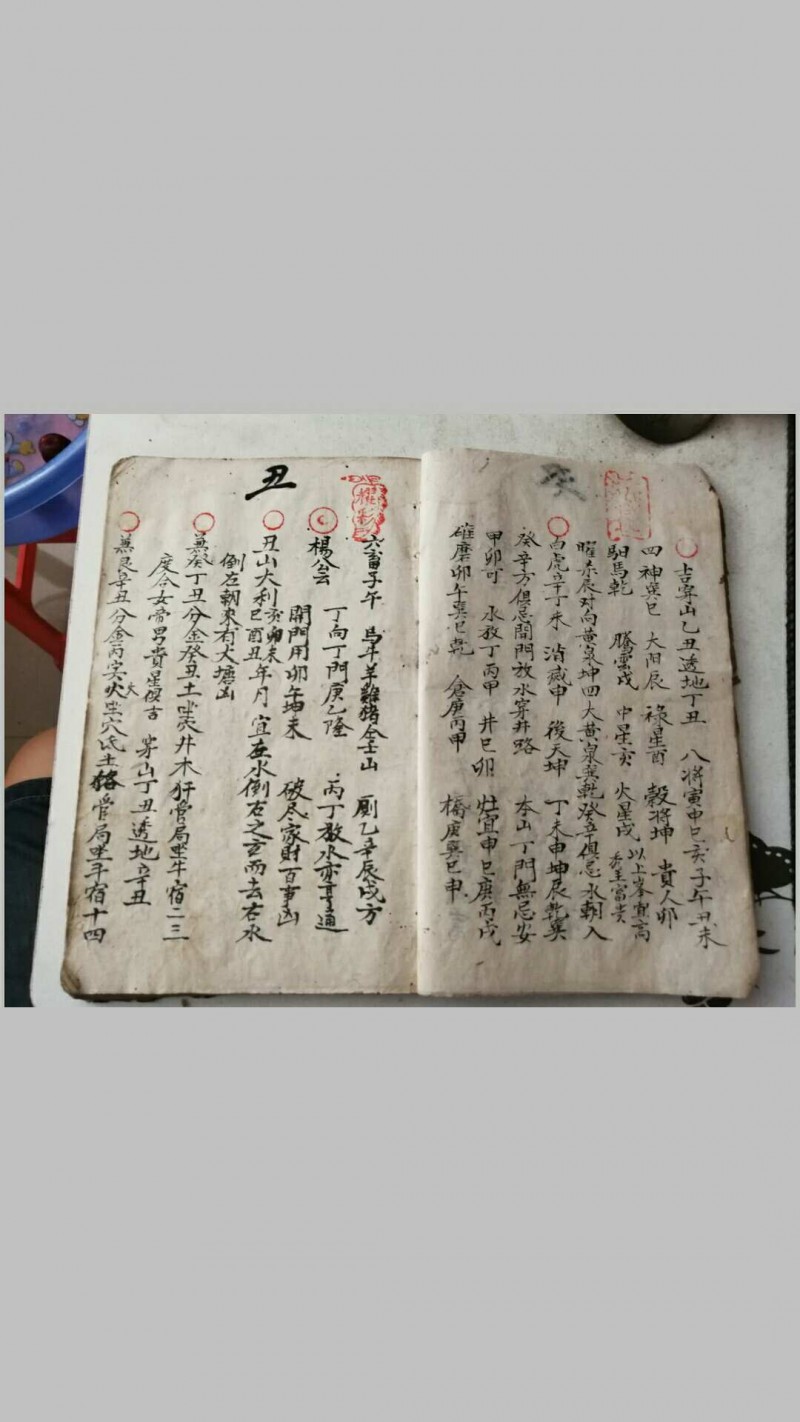 癸
吉穿山乙丑透地丁丑 八將寅申巳亥子午丑未
四神巽巳 太阳辰 祿星酉 穀将坤 貴人卯
馹馬乾 騰雲戌 中星亥 火星戌 以上峯宜高
秀主富贵
曜杀辰对向黄泉坤四大黄泉巽乾癸辛俱忌水朝入
白虎辛丁未 消滅申 後天坤 丁未申坤辰乾巽
癸辛方俱忌開門放水穿井路 本山丁門無忌安
甲卯可 水放丁丙甲 井巳卯 灶宜申巳庚丙戌
碓磨卯午巽巳乾 倉庚丙甲 橋庚巽巳申
六畜子午 馬牛羊雞猪全壬山 厠乙辛辰戌方
楊公云 丁向丁門庚乙隆 丙丁放水亦亨通
開門用卯午坤未 破尽家財百事凶
丑山大利亥卯未巳酉丑年月 宜左水倒右之玄而去右水
倒左朝來有大塘凶
兼癸丁丑分金癸丑土坐穴井木犴管局坐牛宿二三
度合女帝男貴星復古 穿山丁丑透地辛丑
兼艮辛丑分金丙寅火坐穴氐土貉管局坐斗宿十四
大
丑